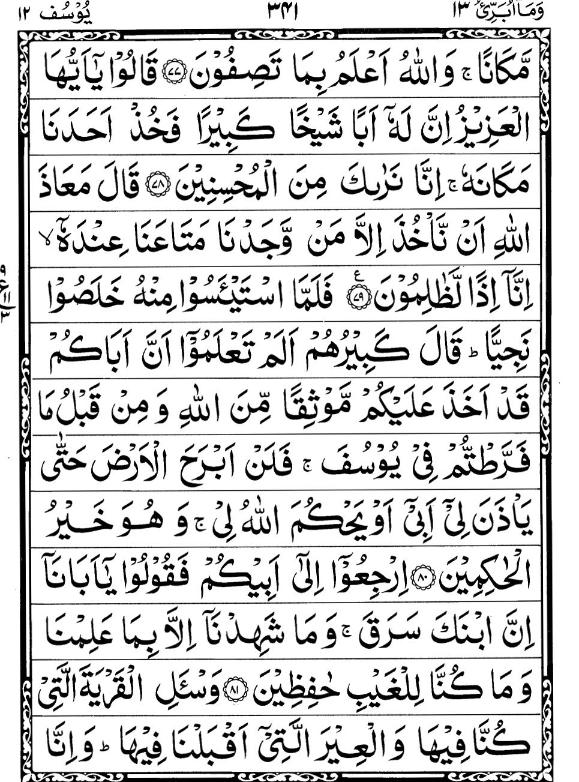 وَمَآ اُبَرِّئُ ١٣ ٣٤١ يُوْسُف ١٢
مَّكَانًا ۚ وَاللّٰهُ اَعْلَمُ بِمَا تَصِفُوْنَ ﴿٧٧﴾ قَالُوْا يٰۤاَيُّهَا
الْعَزِيْزُ اِنَّ لَهٗۤ اَبًا شَيْخًا كَبِيْرًا فَخُذْ اَحَدَنَا
مَكَانَهٗ ۚ اِنَّا نَرٰىكَ مِنَ الْمُحْسِنِيْنَ ﴿٧٨﴾ قَالَ مَعَاذَ
اللّٰهِ اَنْ نَّاْخُذَ اِلَّا مَنْ وَّجَدْنَا مَتَاعَنَا عِنْدَهٗۤ ۙ
اِنَّاۤ اِذًا لَّظٰلِمُوْنَ ﴿٧٩﴾ ع فَلَمَّا اسْتَيْئَسُوْا مِنْهُ خَلَصُوْا
نَجِيًّا ؕ قَالَ كَبِيْرُهُمْ اَلَمْ تَعْلَمُوْۤا اَنَّ اَبَاكُمْ
قَدْ اَخَذَ عَلَيْكُمْ مَّوْثِقًا مِّنَ اللّٰهِ وَمِنْ قَبْلُ مَا
فَرَّطْتُّمْ فِيْ يُوْسُفَ ۚ فَلَنْ اَبْرَحَ الْاَرْضَ حَتّٰى
يَاْذَنَ لِيْۤ اَبِيْۤ اَوْ يَحْكُمَ اللّٰهُ لِيْ ۚ وَهُوَ خَيْرُ
الْحٰكِمِيْنَ ﴿٨٠﴾ اِرْجِعُوْۤا اِلٰۤى اَبِيْكُمْ فَقُوْلُوْا يٰۤاَبَانَاۤ
اِنَّ ابْنَكَ سَرَقَ ۚ وَمَا شَهِدْنَاۤ اِلَّا بِمَا عَلِمْنَا
وَمَا كُنَّا لِلْغَيْبِ حٰفِظِيْنَ ﴿٨١﴾ وَسْـَٔلِ الْقَرْيَةَ الَّتِيْ
كُنَّا فِيْهَا وَالْعِيْرَ الَّتِيْۤ اَقْبَلْنَا فِيْهَا ؕ وَاِنَّا